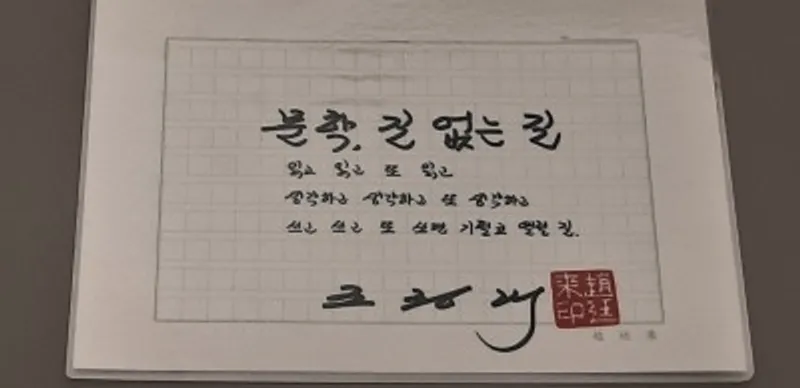 문학, 길 없는 길
읽고 읽고 또 읽고
생각하고 생각하고 또 생각하고
쓰고 쓰고 또 쓰면 기필코 열릴 길.
조정래
趙廷來印